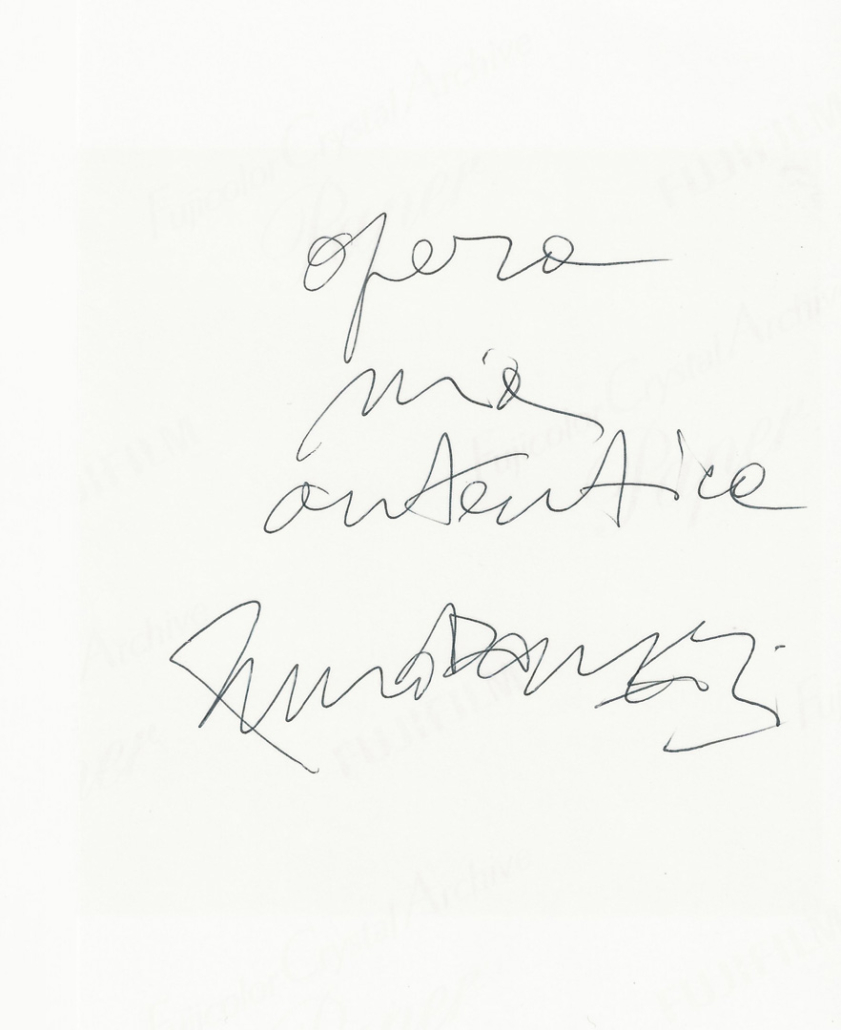 Fujicolor Crystal Archive
Paper
FUJIFILM
opera
mia
Fujicolor Crystal Archive
Paper
FUJIFILM
autentica
Archive
FUJIFILM
Fujicolor Crystal Archive
FUJIFILM